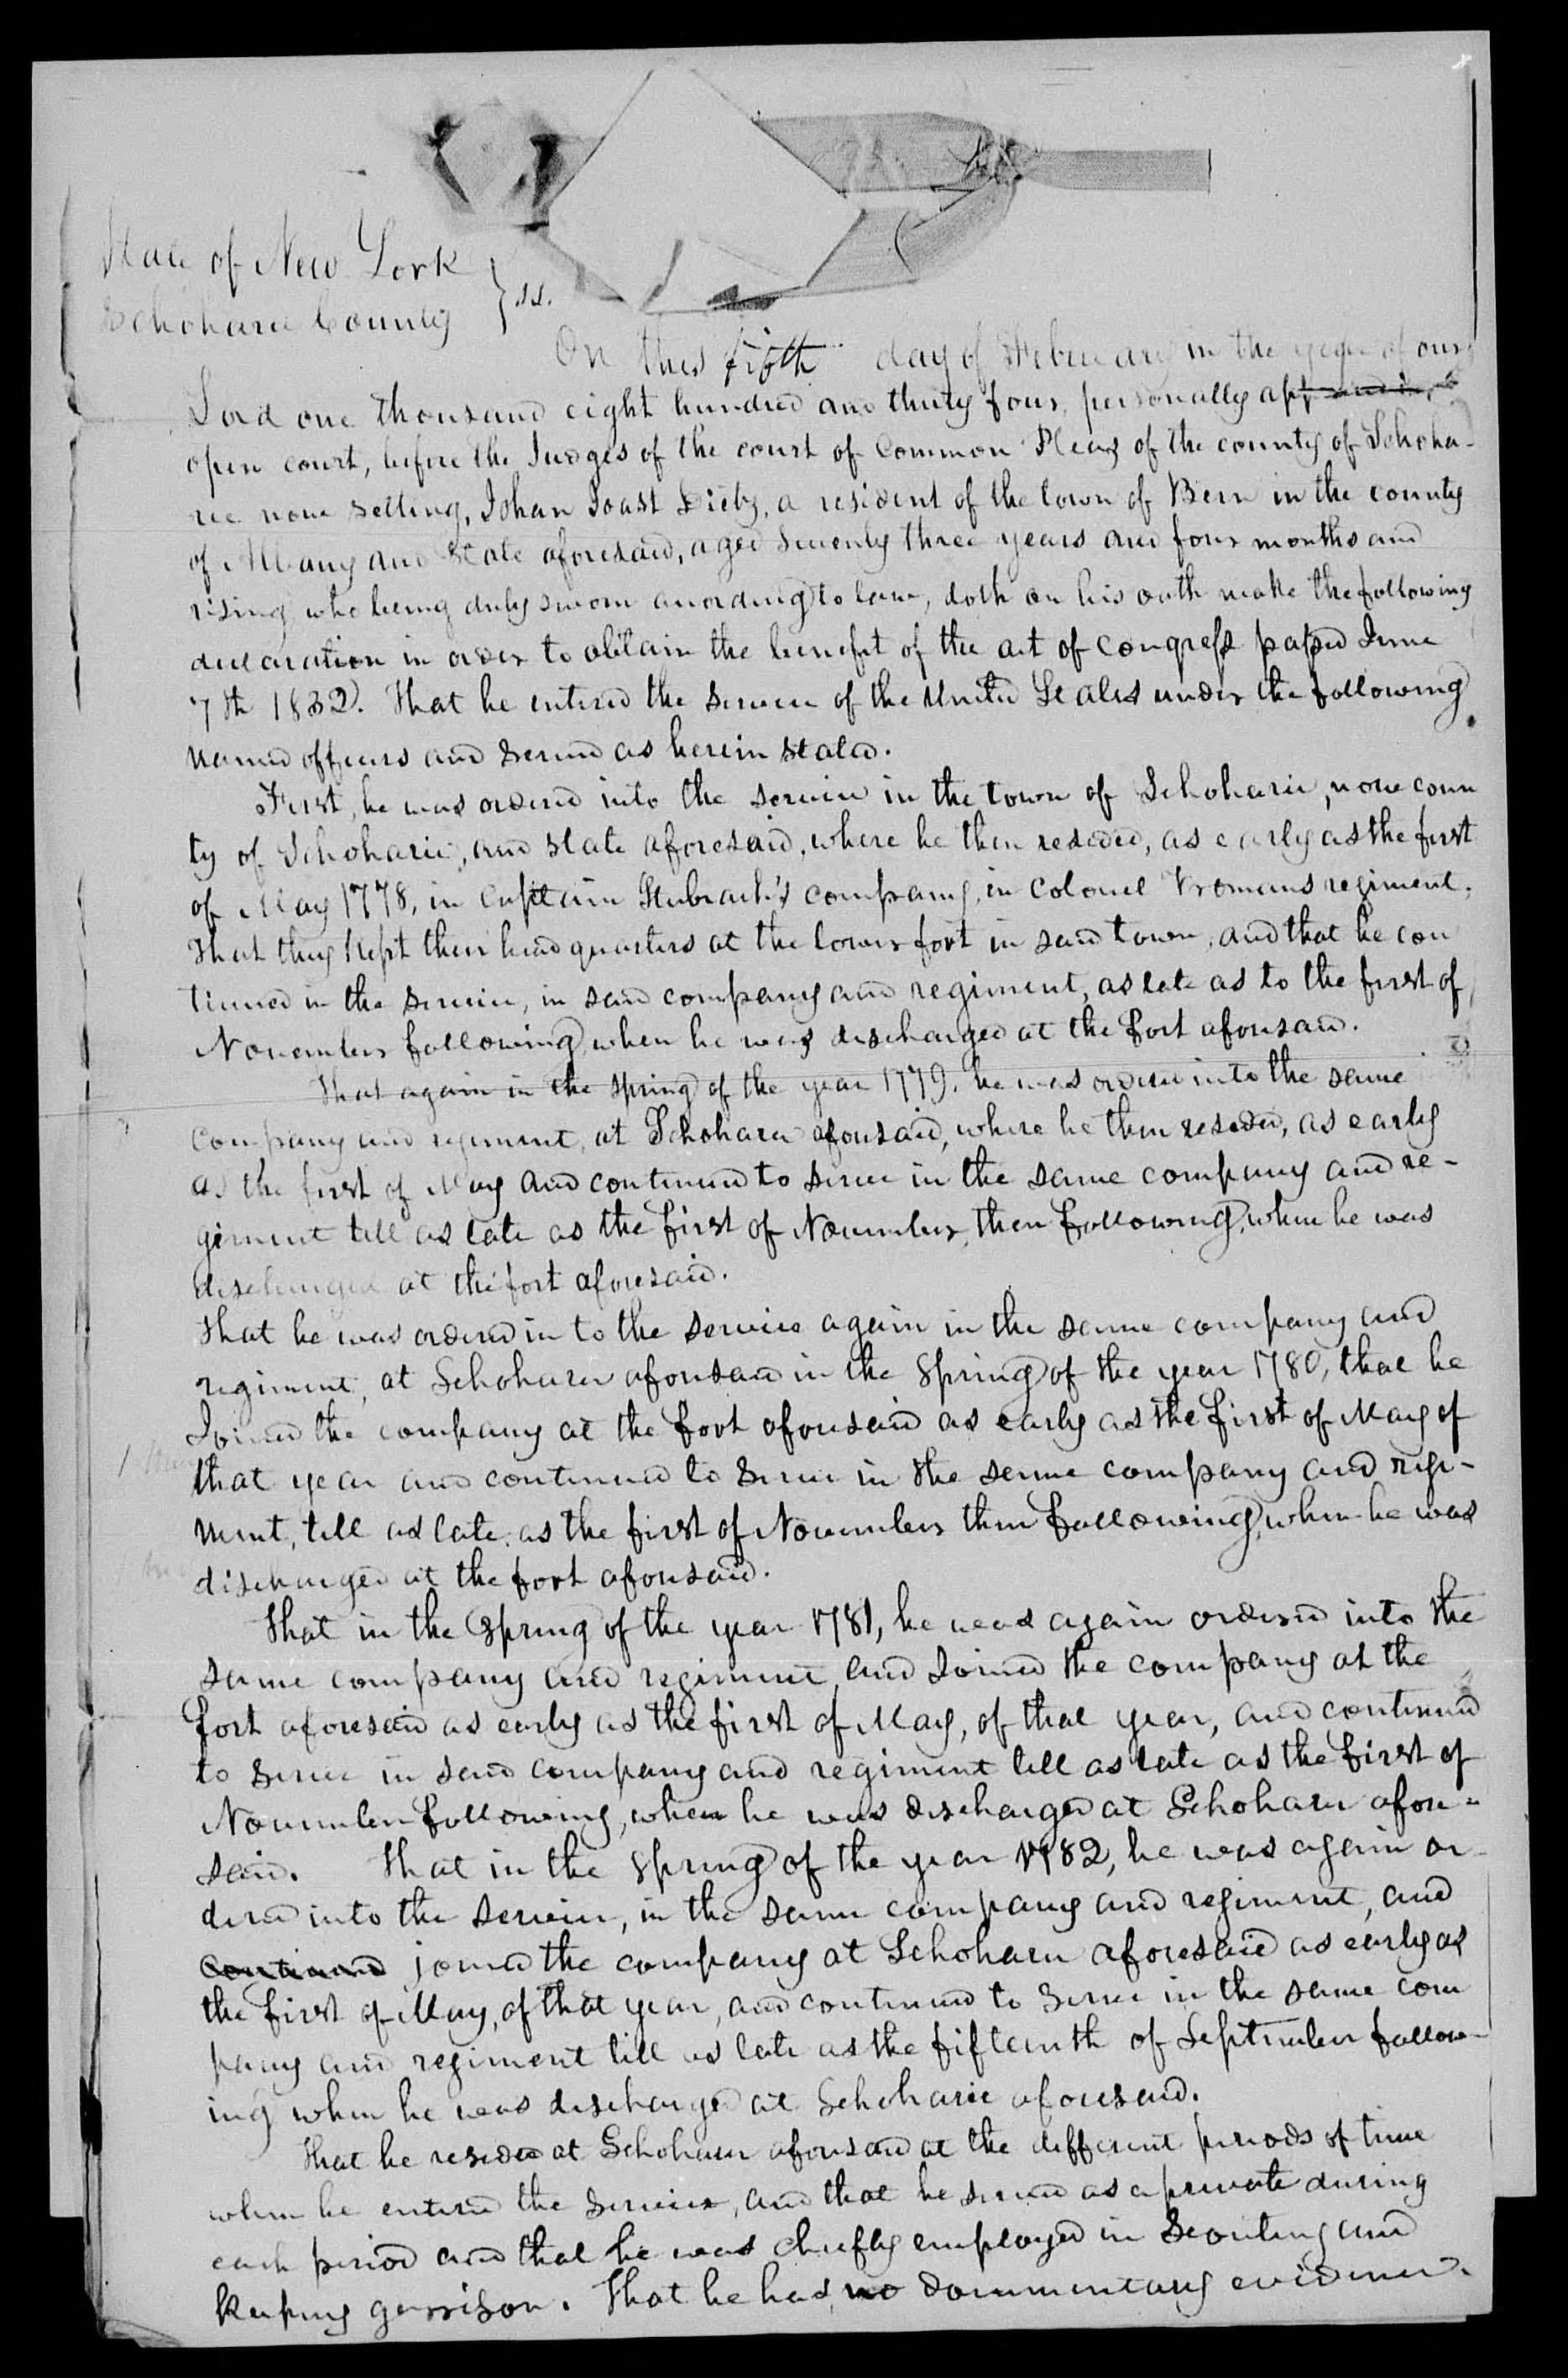 State of New York
Schoharie County } ss.
On this fifth day of February in the year of our
Lord one thousand eight hundred and thirty four, personally
open court, before the Judges of the court of Common Pleas of the county of Schoha-
rie now setting, Johan Joast Dietz, a resident of the town of Bern in the county
of Albany and State aforesaid, aged seventy three years and four months and
rising who being duly sworn according to law, doth on his oath make the following
declaration in order to obtain the benefit of the act of congress passed June
7th 1832. That he entered the service of the United States under the following
named officers and served as herein stated.
First, he was ordered into the service in the town of Schoharie, now coun
ty of Schoharie, and state aforesaid, where he then resided, as early as the first
of May 1778, in Captain Stubrach's company, in Colonel Vromans regiment.
that they kept their head quarters at the lower fort in said town, and that he con
tinued in the service, in said company and regiment, as late as to the first of
November following, when he was discharged at the fort aforesaid.
That again in the spring of the year 1779, he was ordered into the same
company and regiment, at Schoharie aforesaid, where he then resided, as early
as the first of May and continued to serve in the same company and re-
giment till as late as the first of November, then following, when he was
discharged at the fort aforesaid.
that he was ordered in to the service again in the same company and
regiment, at Schoharie aforesaid in the spring of the year 1780, that he
Joined the company at the fort aforesaid as early as the first of May of
that year and continued to serve in the same company and regi-
ment, till as late as the first of November then following, when he was
discharged at the fort aforesaid.
that in the spring of the year 1781, he was again ordered into the
same company and regiment, and Joined the company at the
fort aforesaid as early as the first of May, of that year, and continued
to serve in said company and regiment till as late as the first of
November following, when he was discharged at Schoharie afore-
said. that in the spring of the year 1782, he was again or
dered into the service, in the same company and regiment, and
continued joined the company at Schoharie aforesaid as early as
the first of May, of that year, and continued to serve in the same com
pany and regiment till as late as the fifteenth of September follow-
ing when he was discharged at Schoharie aforesaid.
that he resided at Schoharie aforesaid at the different periods of time
when he entered the service, and that he served as a private during
each period and that he was chiefly employed in Scouting and
keeping garrison. That he has no documentary evidence.